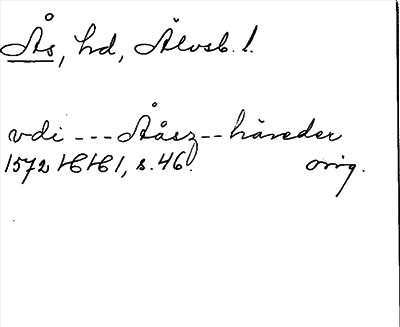 Ås, hd, Älvsb. l.
vdi --- Åårz -- häreder
1572 HH 1, s. 46. orig.